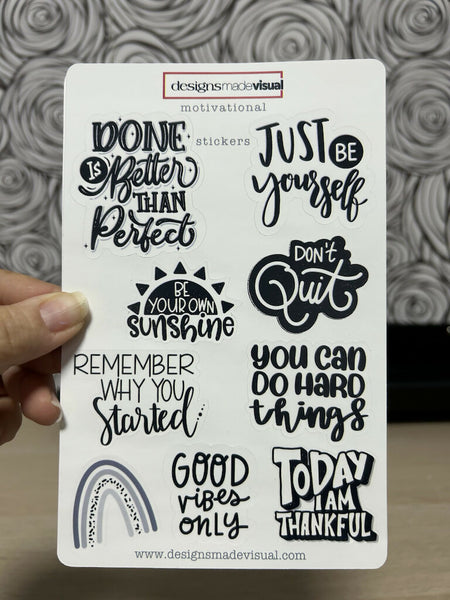 designsmadevisual
motivational
stickers
DONE
Is Better
THAN
Perfect
JUST BE
yourself
BE
YOUR OWN
sunshine
DON't
Quit
REMEMBER
WHY YOU
Started
you can
DO HARD
things
GOOD
vibes
ONLY
TODAY
I AM
THANKFUL
www.designsmadevisual.com